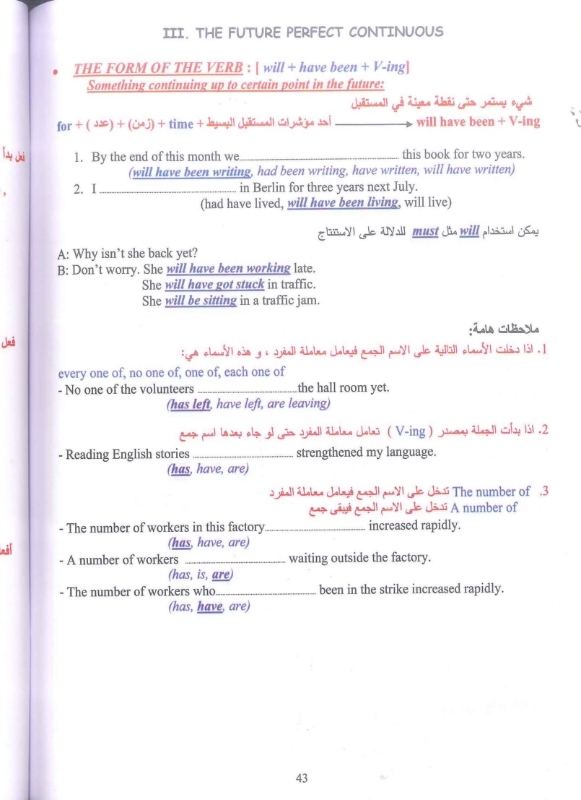 III. THE FUTURE PERFECT CONTINUOUS
• THE FORM OF THE VERB : [ will + have been + V-ing]
Something continuing up to certain point in the future:
شيء يستمر حتى نقطة معينة في المستقبل
for + ( عدد ) + (زمن) + time + أحد مؤشرات المستقبل البسيط → will have been + V-ing
1. By the end of this month we.................................... this book for two years.
(will have been writing, had been writing, have written, will have written)
2. I .................................... in Berlin for three years next July.
(had have lived, will have been living, will live)
يمكن استخدام will مثل must للدلالة على الاستنتاج
A: Why isn't she back yet?
B: Don't worry. She will have been working late.
She will have got stuck in traffic.
She will be sitting in a traffic jam.
ملاحظات هامة:
1. اذا دخلت الأسماء التالية على الاسم الجمع فيعامل معاملة المفرد ، و هذه الأسماء هي:
every one of, no one of, one of, each one of
- No one of the volunteers ..........................the hall room yet.
(has left, have left, are leaving)
2. اذا بدأت الجملة بمصدر ( V-ing ) تعامل معاملة المفرد حتى لو جاء بعدها اسم جمع
- Reading English stories .......................... strengthened my language.
(has, have, are)
3. The number of تدخل على الاسم الجمع فيعامل معاملة المفرد
A number of تدخل على الاسم الجمع فيبقى جمع
- The number of workers in this factory.......................... increased rapidly.
(has, have, are)
- A number of workers .......................... waiting outside the factory.
(has, is, are)
- The number of workers who.......................... been in the strike increased rapidly.
(has, have, are)
43